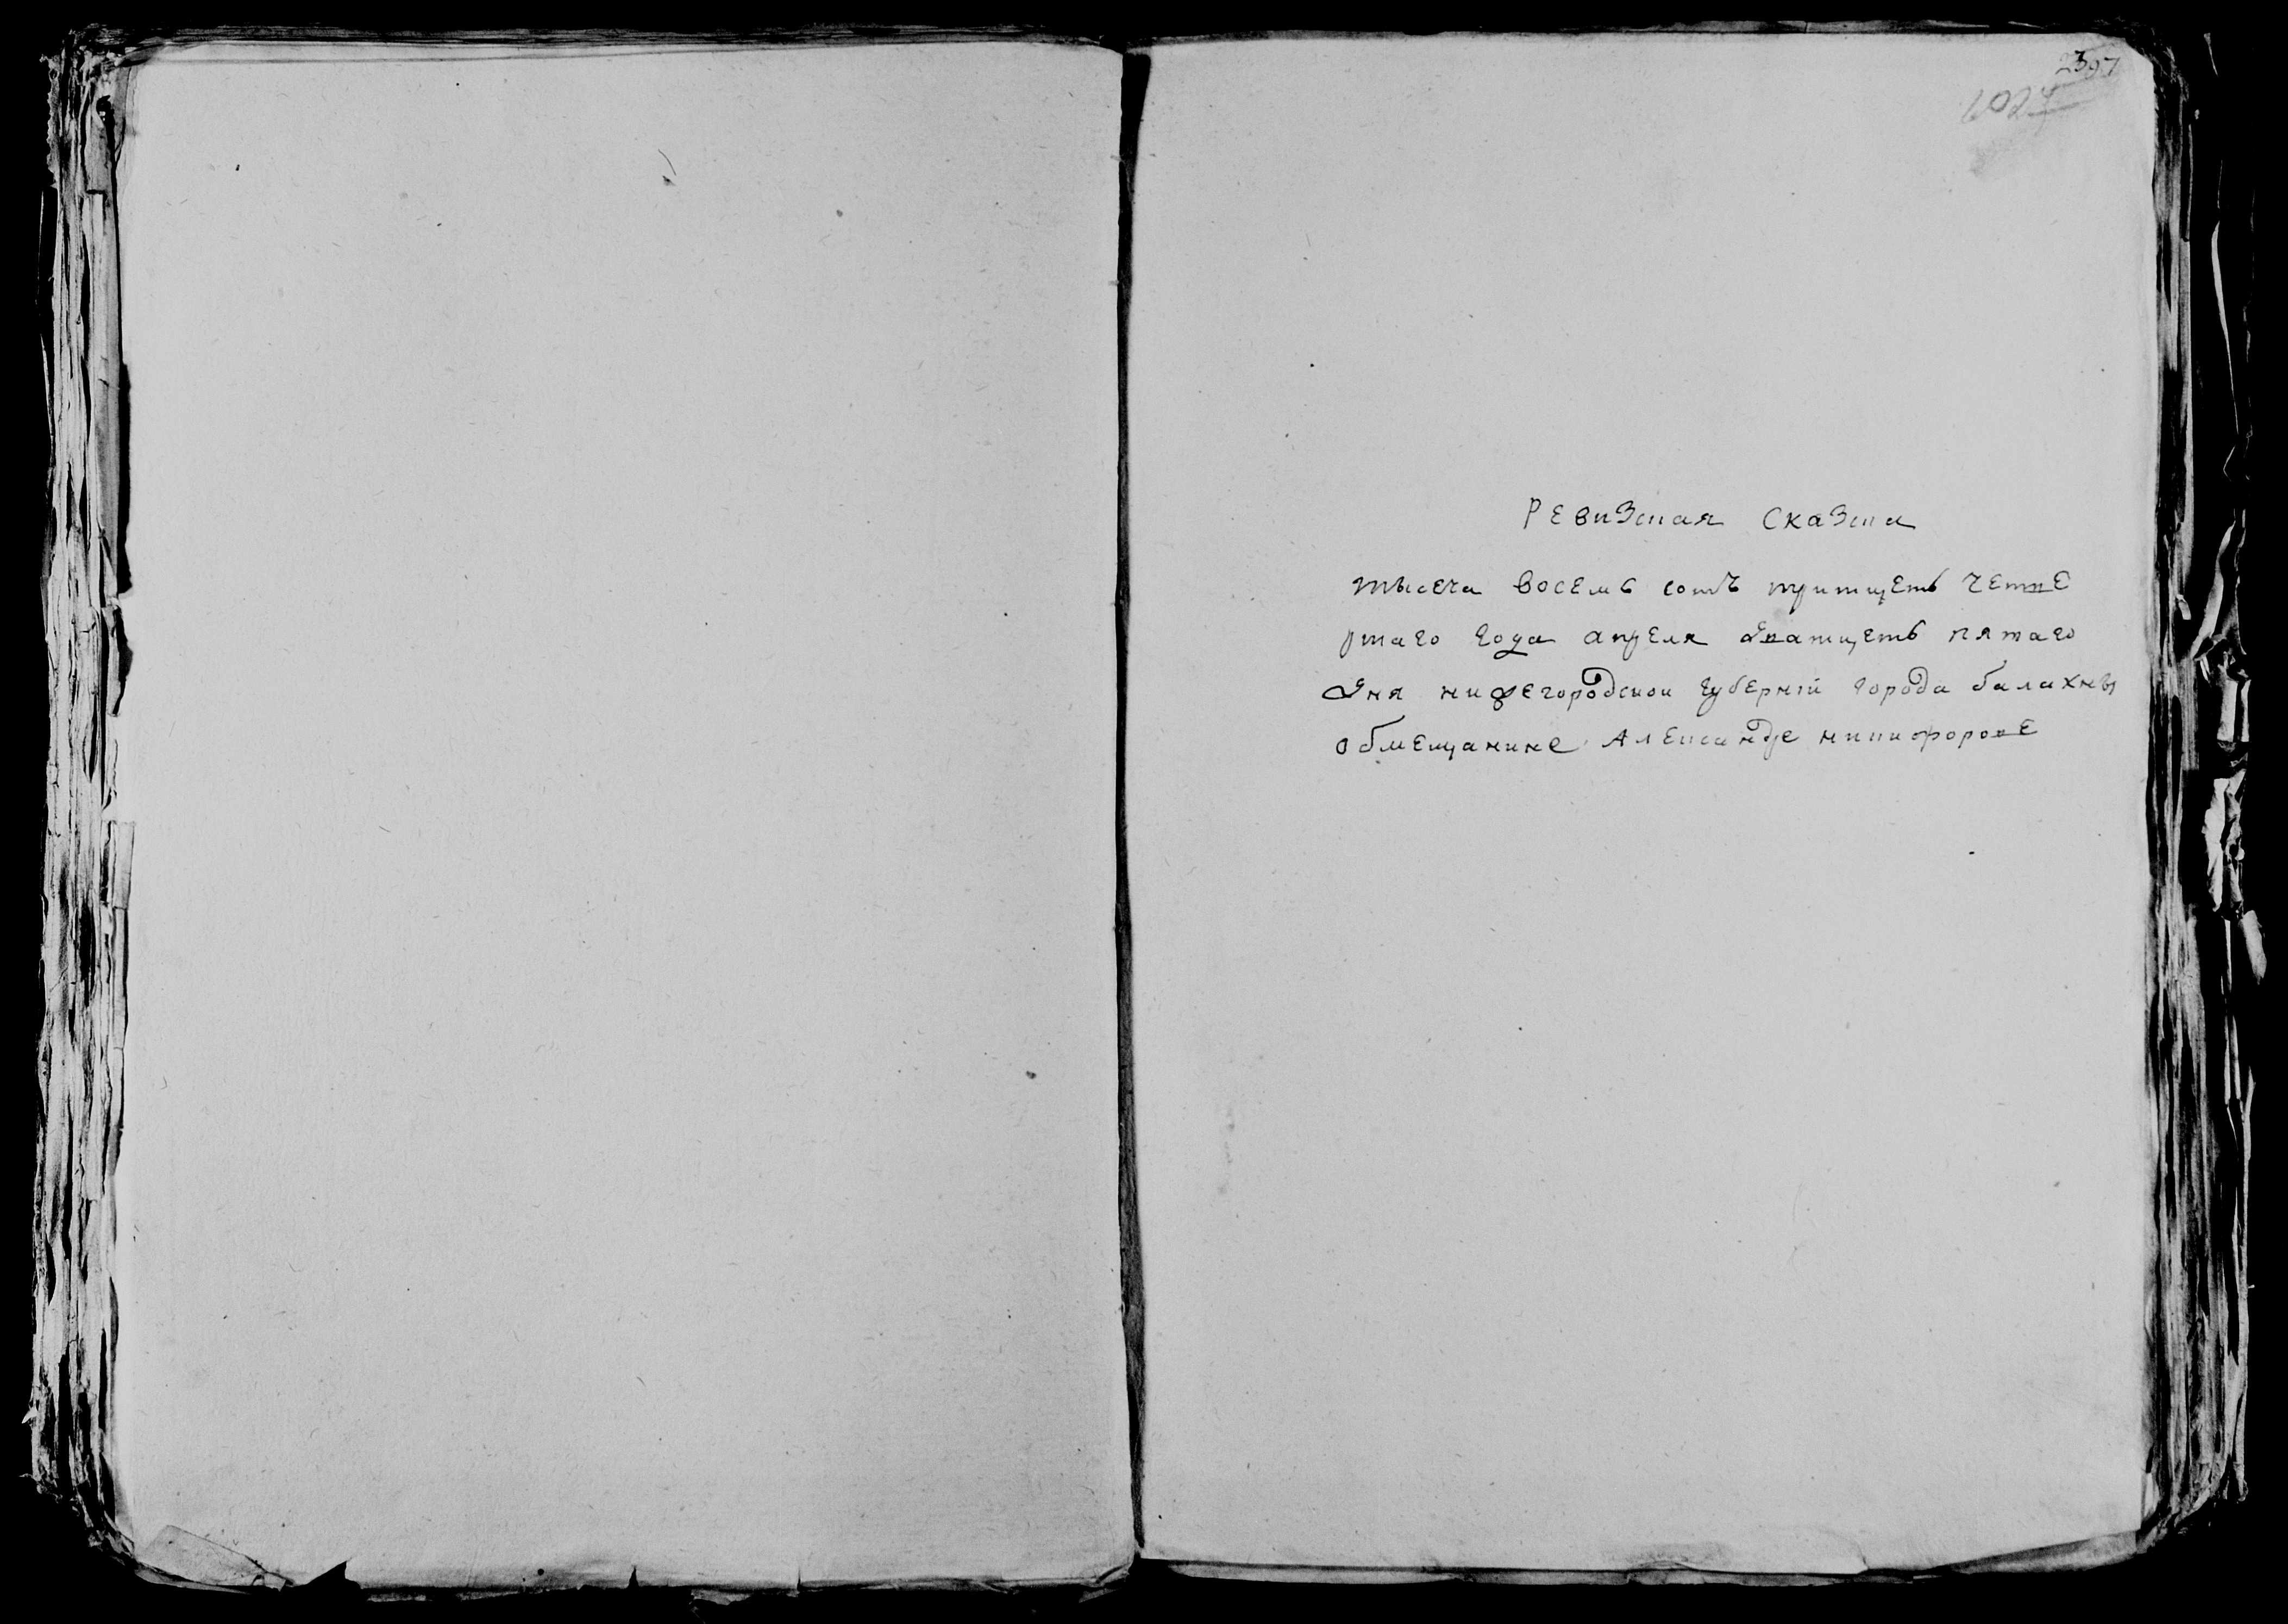 2397
1027
Ревизская Сказка
тысеча восемь сотъ тритцеть четве
ртаго года апреля дватцеть пятаго
дня нижегородскои губернїи города балахны
обмещанине Александре никифорове